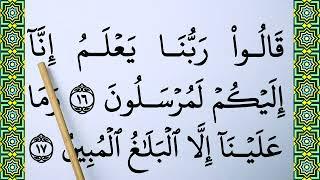 قَالُوا۟ رَبُّنَا يَعْلَمُ إِنَّآ
إِلَيْكُمْ لَمُرْسَلُونَ ١٦ وَمَا
عَلَيْنَآ إِلَّا ٱلْبَلَٰغُ ٱلْمُبِينُ ١٧